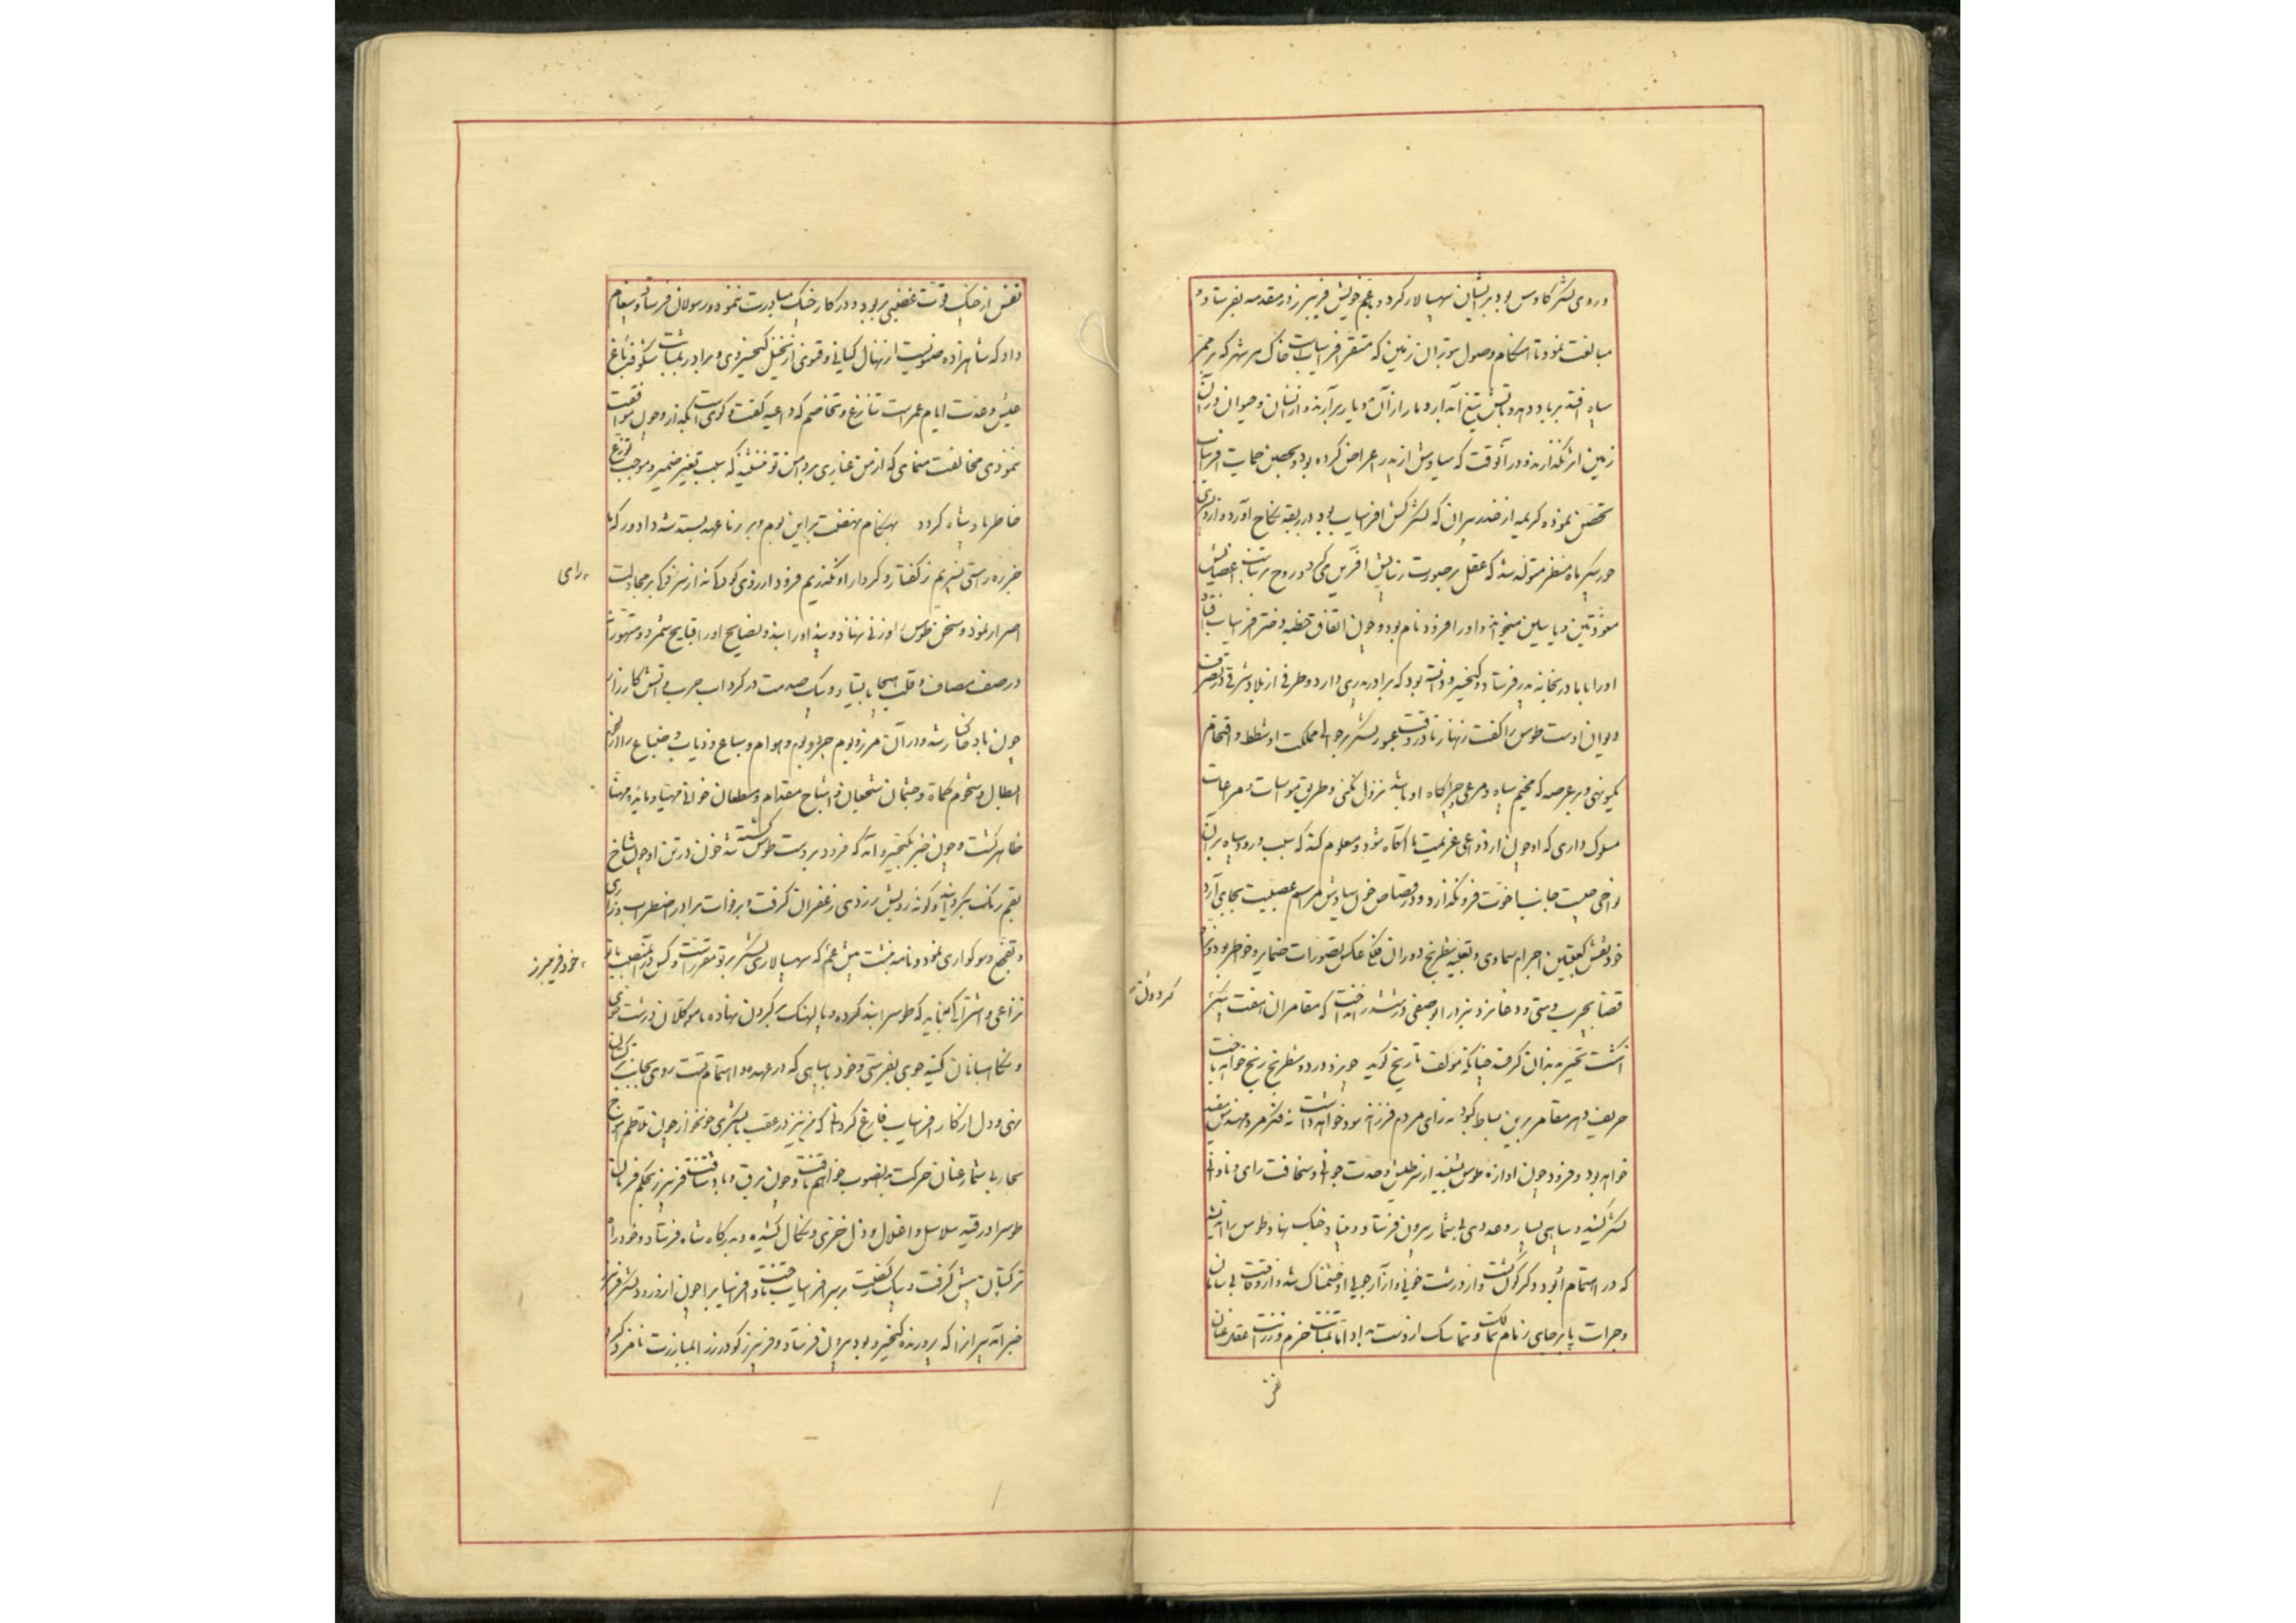 و روی لشکر کاوس بود بر ایشان سپهسالار کرد و عم خویش فریبرز در مقدمه بفرستاد و
مبالغت نمود تا هنگام وصول بتوران زمین که مستقر افراسیابست خاک هر شهر که بر ممر
سپاه افتد بر باد دهد و باتش تیغ آبدار دمار از آن دیار برآرند و از انسان و حیوان در آن
زمین اثر نگذارند و در آنوقت که سیاوش از پدر اعراض کرده بود و بحصن حمایت افراسیاب
تحصن نموده کریمه از خدر پیران که لشکرکش افراسیاب بود در ربقه نکاح آورد و از وی پسری
خورشید ماه منظر متولد شد که عقل بر صورت زیبایش آفرین می کرد و روح بر تناسب اعضایش
معوذتین و یاسین میخواند و او را فرود نام بود و چون اتفاق خطبه دختر افراسیاب افتاد
او را با مادر بخانه پدر فرستاد و کیخسرو دانسته بود که برادر پدری دارد و طرفی از بلاد شرقی در تصرف
دیوان اوست طوس را گفت زنهار تا در وقت عبور لشکر بر حوالی مملکت او شطط و اقتحام
یکسو نهی و بر عرصه که مخیم سپاه و مرعی چراگاه او باشد نزول نکنی و طریق مواسات و مراعات
مسلوک داری که او چون از دواعی عزیمت ما آگاه شود و معلوم کند که سبب ورود سپاه بر آن
نواحی چیست جانب اخوت فرو نگذارد و در قصاص خون سیاوش مراسم عصبیت بجای آرد
خود نقش کعبتین اجرام سماوی و تعبیه شطرنج دوران فلک عکس تصورات ضمایر و خواطر بود و نراد
قضا بحریف دستی و دغا نرد نبرد او بصفتی در ششدر انداخت که مقامران هفت کشور
انگشت تحیر بدندان گرفتند چنانکه مولف تاریخ گوید چو نرد درد و شطرنج رنج خواهد باخت
حریف دهر مقامر برین بساط کبود نه رای مردم فرزانه سود خواهد داشت نه فکر مرد مهندس مفید
خواهد بود و فرود چون آوازه طوس بشنید از سر طیش و حدت جوانی و سخافت رای و نادانی
لشکر کشید و سپاهی بسیار و عددی بی شمار بیرون فرستاد و بنیاد جنگ نهاد طوس را اندیشه
که در اهتمام او بود دگرگون گشت و از درشت خویی و آزار جبلی او خشمناک شد و از وقاحت بی سامان
و جرات پا برجای زمام تمالک و تماسک از دست بداد تا بثبات حزم و رزانت عقد عنان
نفس
کردون
نفس از چنگ قوت غضبی بربود و در کار جنگ مبادرت ننمود و رسولان فرستاد و پیغام
داد که شاهزاده صنویست از نهال کیانی و قنوی از نخیل کیخسروی و برادر بمثابت شکوفه باغ
عیش و عدت ایام عمر است تنازع و تخاصم که داعیه گفت و گوی است آنکه از وجوب موافقت
نمودی مخالفت منمای که از من غباری بر دامن تو ننشیند که سبب تغیر ضمیر و موجب توزع
خاطر پادشاه گردد بهنگام نهضت بر این بوم و بر مرا عهد بستد شه دادور که ما
جز ره راستی نسپریم ز گفتار و کردار او نگذریم فرود از روی کودکانه از سر نزق بر مجادلت
اصرار نمود و سخن طوس را وزنی ننهاد و پند او را بند و نصایح او را قبایح شمرد و متهورانه
در صف مصاف و قلب هیجا بایستاد و بیک صدمت در گرداب حرب و آتش کارزار
چون باد خاکسار شد و در آن مرز و بوم چرز و بوم و هوام و سباع و ذیاب و ضباع را از لحوم
ابطال و شحوم کماة و جثمان شجعان و اشباح مقدام و مطعان خوانی مهیا و مایده مهنا
ظاهر گشت و چون خبر بکیخسرو آمد که فرود بر دست طوس کشته شد خون در تن او چون شاخ
بقم رنگ بگردانید و گونه رویش زردی زعفران گرفت و بر وفات برادر اضطراب و زاری
و تفجع و سوگواری نمود و نامه نبشت پیش عم که سپهسالاری لشکر بر تو مقرر است و کس را در منصب با تو
نزاعی و اشتراکی نباید که طوس را بند کرده و پالهنگ بر گردن نهاده با موکلان درشت خوی
و نگاهبانان کینه جوی بفرستی و خود با سپاهی که در عهده اهتمام تست روی بجانب ترکستان
نهی و دل از کار افراسیاب فارغ گردانی که من نیز در عقب با لشکری خونخوار چون تلاطم امواج
بحار بی شمار عنان حرکت بدانصوب خواهم تافت و چون برق و باد شتافت فریبرز بحکم فرمان
طوس را در قید سلاسل و اغلال و ذل خزی و نکال کشیده بدرگاه شاه فرستاد و خود راه
ترکستان پیش گرفت و بیک رکضت بر سر افراسیاب تاخت و افراسیاب را چون از ورود لشکر فریبرز
خبر آمد پیران را که پرورنده کیخسرو بود بیرون فرستاد و فریبرز گودرز را لمبارزت نامزد کرد
رای
خود فریبرز